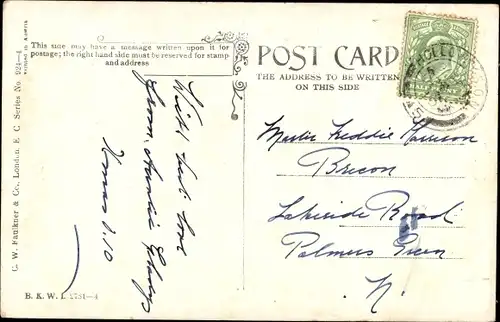 This side may have a message written upon it for
postage; the right hand side must be reserved for stamp
and address
POST CARD
THE ADDRESS TO BE WRITTEN
ON THIS SIDE
C. W. Faulkner & Co., London. E. C. Series No. 924—4
With best love
from Auntie
Xmas 1910
Master Freddie Harrison
Brecon
Lakeside Road
Palmers Green
N.
B. K. W. I. 2751—4